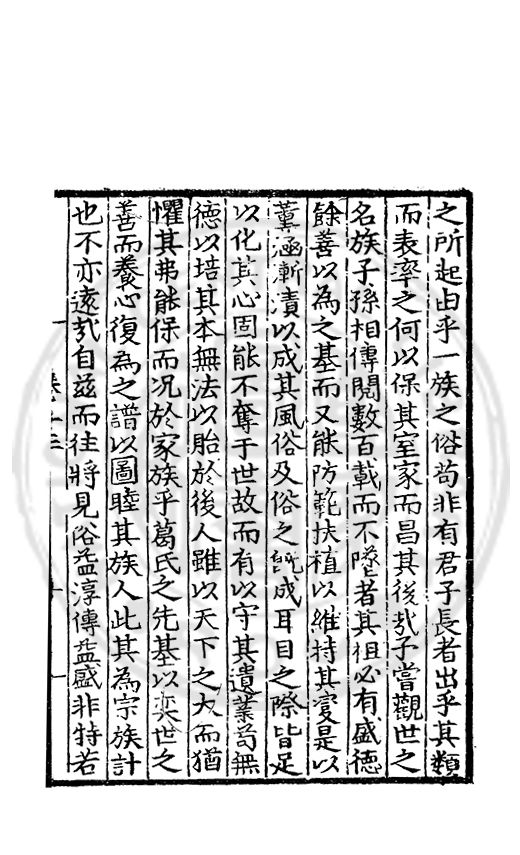 之所起由乎一族之俗苟非有君子長者出乎其類
而表率之何以保其室家而昌其後㢤子嘗觀世之
名族子孫相傳閱數百載而不墜者其祖必有盛德
餘善以為之基而又能防範扶植以維持其𡕥是以
薰涵漸漬以成其風俗及俗之既成耳目之際皆足
以化其心固能不奪于世故而有以守其遺業苟無
德以培其本無法以貽於後人雖以天下之大而猶
懼其弗能保而况於家族乎葛氏之先基以奕世之
善而養心復為之譜以圖睦其族人此其為宗族計
也不亦遠㢤自兹而往將見俗益淳傳益盛非特若